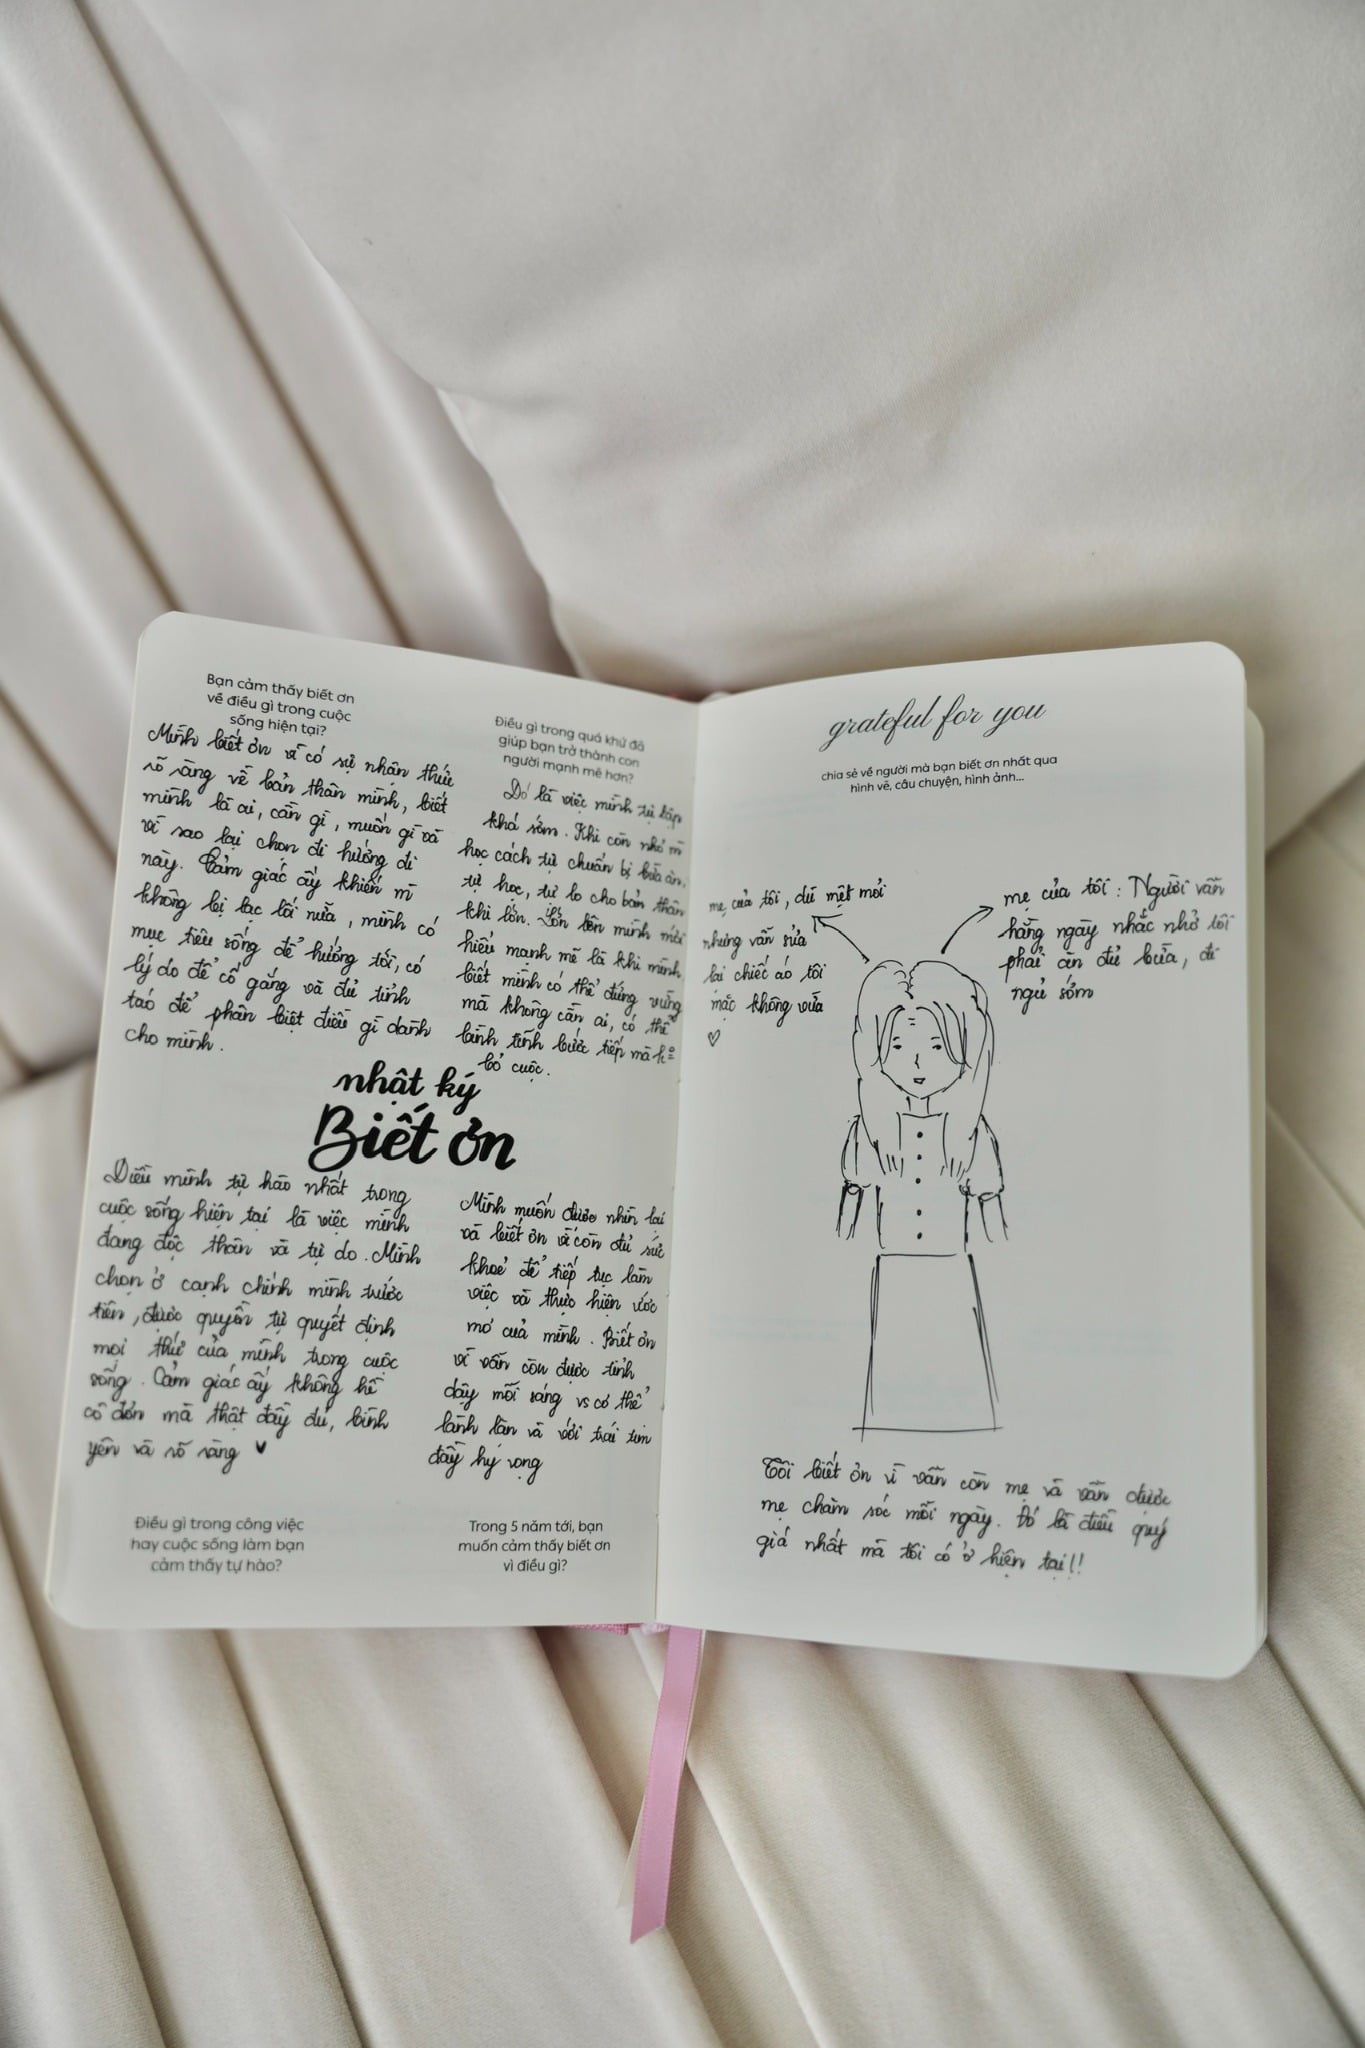 Bạn cảm thấy biết ơn
về điều gì trong cuộc
sống hiện tại?
Mình biết ơn vì có sự nhận thức
rõ ràng về bản thân mình, biết
mình là ai, cần gì, muốn gì và
vì sao lại chọn đi hướng đi
này. Cảm giác ấy khiến m
không bị lạc lối nữa, mình có
mục tiêu sống để hướng tới, có
lý do để cố gắng và đủ tỉnh
táo để phân biệt điều gì dành
cho mình.
Điều gì trong quá khứ đã
giúp bạn trở thành con
người mạnh mẽ hơn?
Đó là việc mình tự lập
khá sớm. Khi còn nhỏ m
học cách tự chuẩn bị bữa ăn,
tự học, tự lo cho bản thân
khi lớn. Lớn lên mình mới
hiểu mạnh mẽ là khi mình
biết mình có thể đứng vững
mà không cần ai, có thể
bình tĩnh bước tiếp mà ko
bỏ cuộc.
nhật ký
Biết ơn
Điều mình tự hào nhất trong
cuộc sống hiện tại là việc mình
đang độc thân và tự do. Mình
chọn ở cạnh chính mình trước
tiên, được quyền tự quyết định
mọi thứ của mình trong cuộc
sống. Cảm giác ấy không hề
cô đơn mà thật đầy đủ, bình
yên và rõ ràng ♥
Điều gì trong công việc
hay cuộc sống làm bạn
cảm thấy tự hào?
Mình muốn được nhìn lại
và biết ơn vì còn đủ sức
khoẻ để tiếp tục làm
việc và thực hiện ước
mơ của mình. Biết ơn
vì vẫn còn được tỉnh
dậy mỗi sáng vs cơ thể
lành lặn và với trái tim
đầy hy vọng
Trong 5 năm tới, bạn
muốn cảm thấy biết ơn
vì điều gì?
grateful for you
chia sẻ về người mà bạn biết ơn nhất qua
hình vẽ, câu chuyện, hình ảnh...
mẹ của tôi, dù mệt mỏi
nhưng vẫn sửa
lại chiếc áo tôi
mặc không vừa
♡
mẹ của tôi: Người vẫn
hằng ngày nhắc nhở tôi
phải ăn đủ bữa, đi
ngủ sớm
Tôi biết ơn vì vẫn còn mẹ và vẫn được
mẹ chăm sóc mỗi ngày. Đó là điều quý
giá nhất mà tôi có ở hiện tại!!